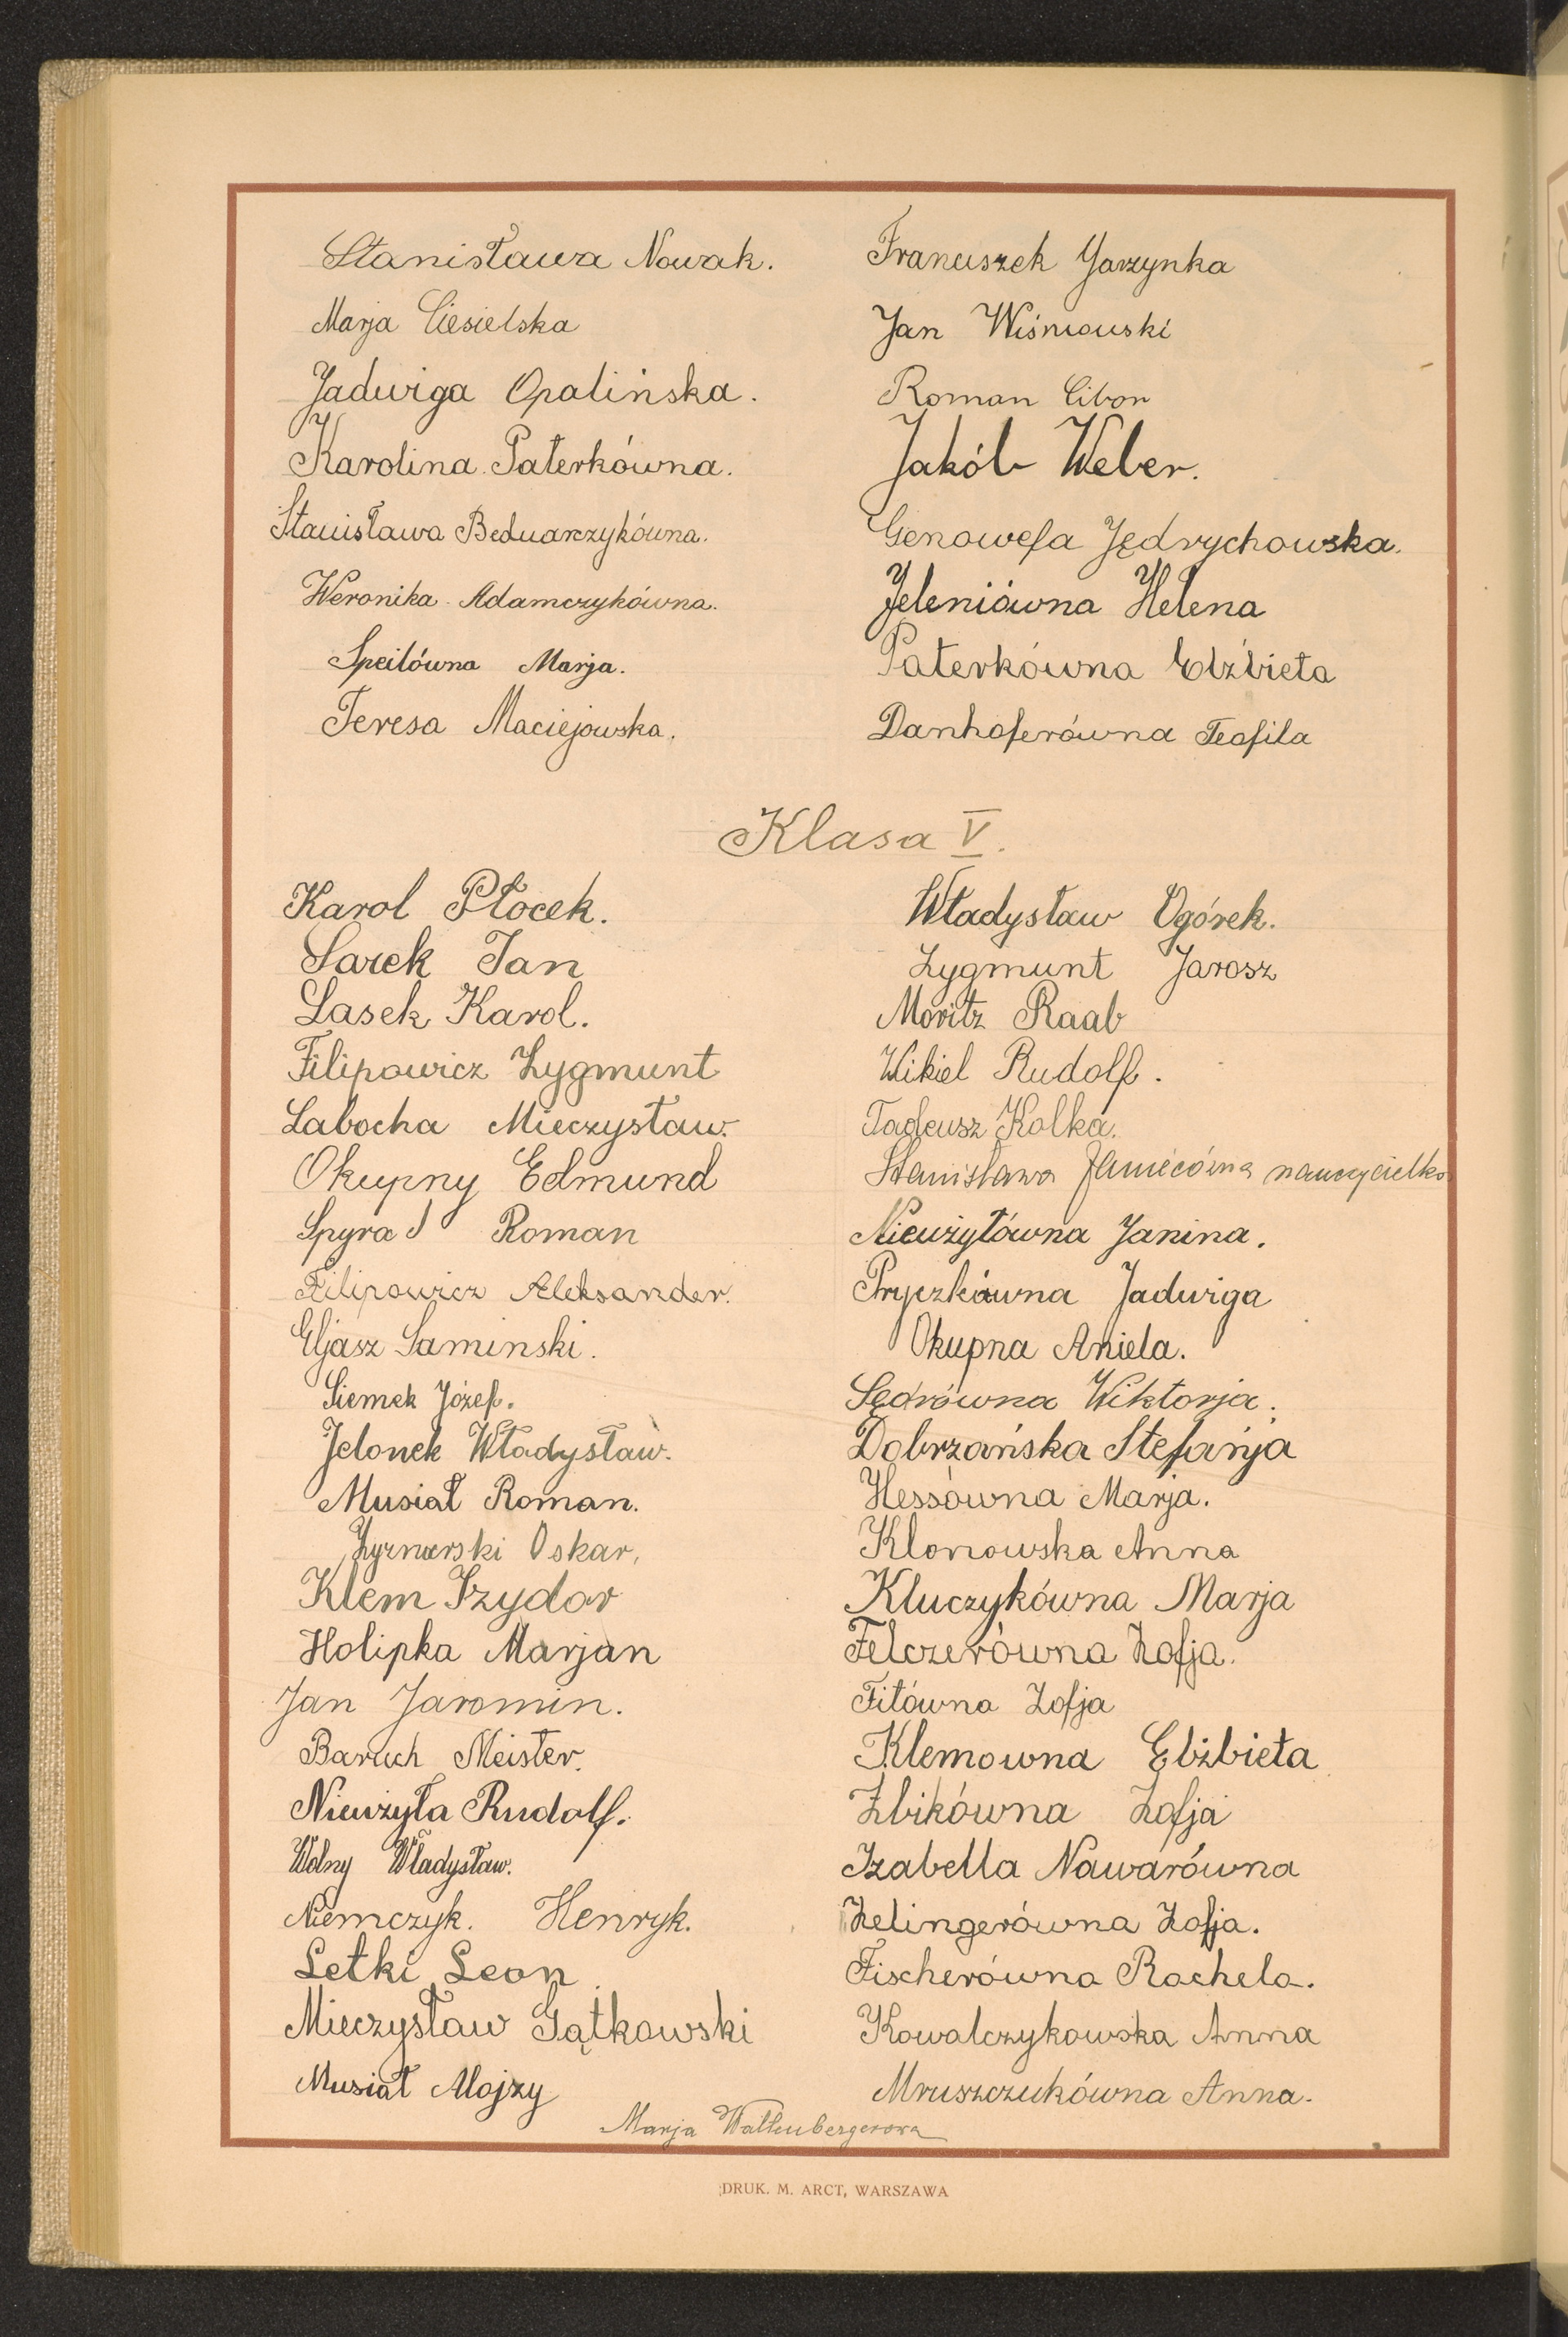 Stanisława Nowak.
Marja Ciesielska
Jadwiga Opalińska.
Karolina Paterkówna.
Stanisława Bednarczykówna.
Weronika Adamczykówna.
Speilówna Marja.
Teresa Maciejowska.
Franciszek Jarzynka
Jan Wiśniowski
Roman Cibor
Jakób Weber.
Genowefa Jędrychowska.
Jeleniówna Helena
Paterkówna Elżbieta
Danhoferówna Teofila
Klasa V.
Karol Płocek.
Sarek Jan
Lasek Karol.
Filipowicz Zygmunt
Labocha Mieczysław.
Okupny Edmund
Spyra Roman
Filipowicz Aleksander.
Eljasz Saminski.
Siemek Józef.
Jelonek Władysław.
Musiał Roman.
Oskar,
Klem Izydor
Holipka Marjan
Jan Jaromin.
Baruch Meister.
Niewżyła Rudolf.
Wolny Władysław.
Niemczyk. Henryk.
Letki Leon
Mieczysław Gątkowski
Musiał Alojzy
Władysław Ogórek.
Zygmunt Jarosz
Moritz Raab
Wikiel Rudolf.
Tadeusz Kolka.
Stanisława nauczycielka
Niewżyłówna Janina.
Pryczkówna Jadwiga
Okupna Aniela.
Sędrówna Wiktorja.
Dobrzańska Stefanja
Hessówna Marja.
Klonowska Anna
Kluczykówna Marja
Felczerówna Zofja.
Fitówna Zofja
Klemowna Elżbieta
Żbikówna Zofja
Izabella Nawarówna
Zelingerówna Zofja.
Fischerówna Rachela.
Kowalczykowska Anna
Mruszczukówna Anna.
Marja Waltenbergerowa
DRUK. M. ARCT, WARSZAWA